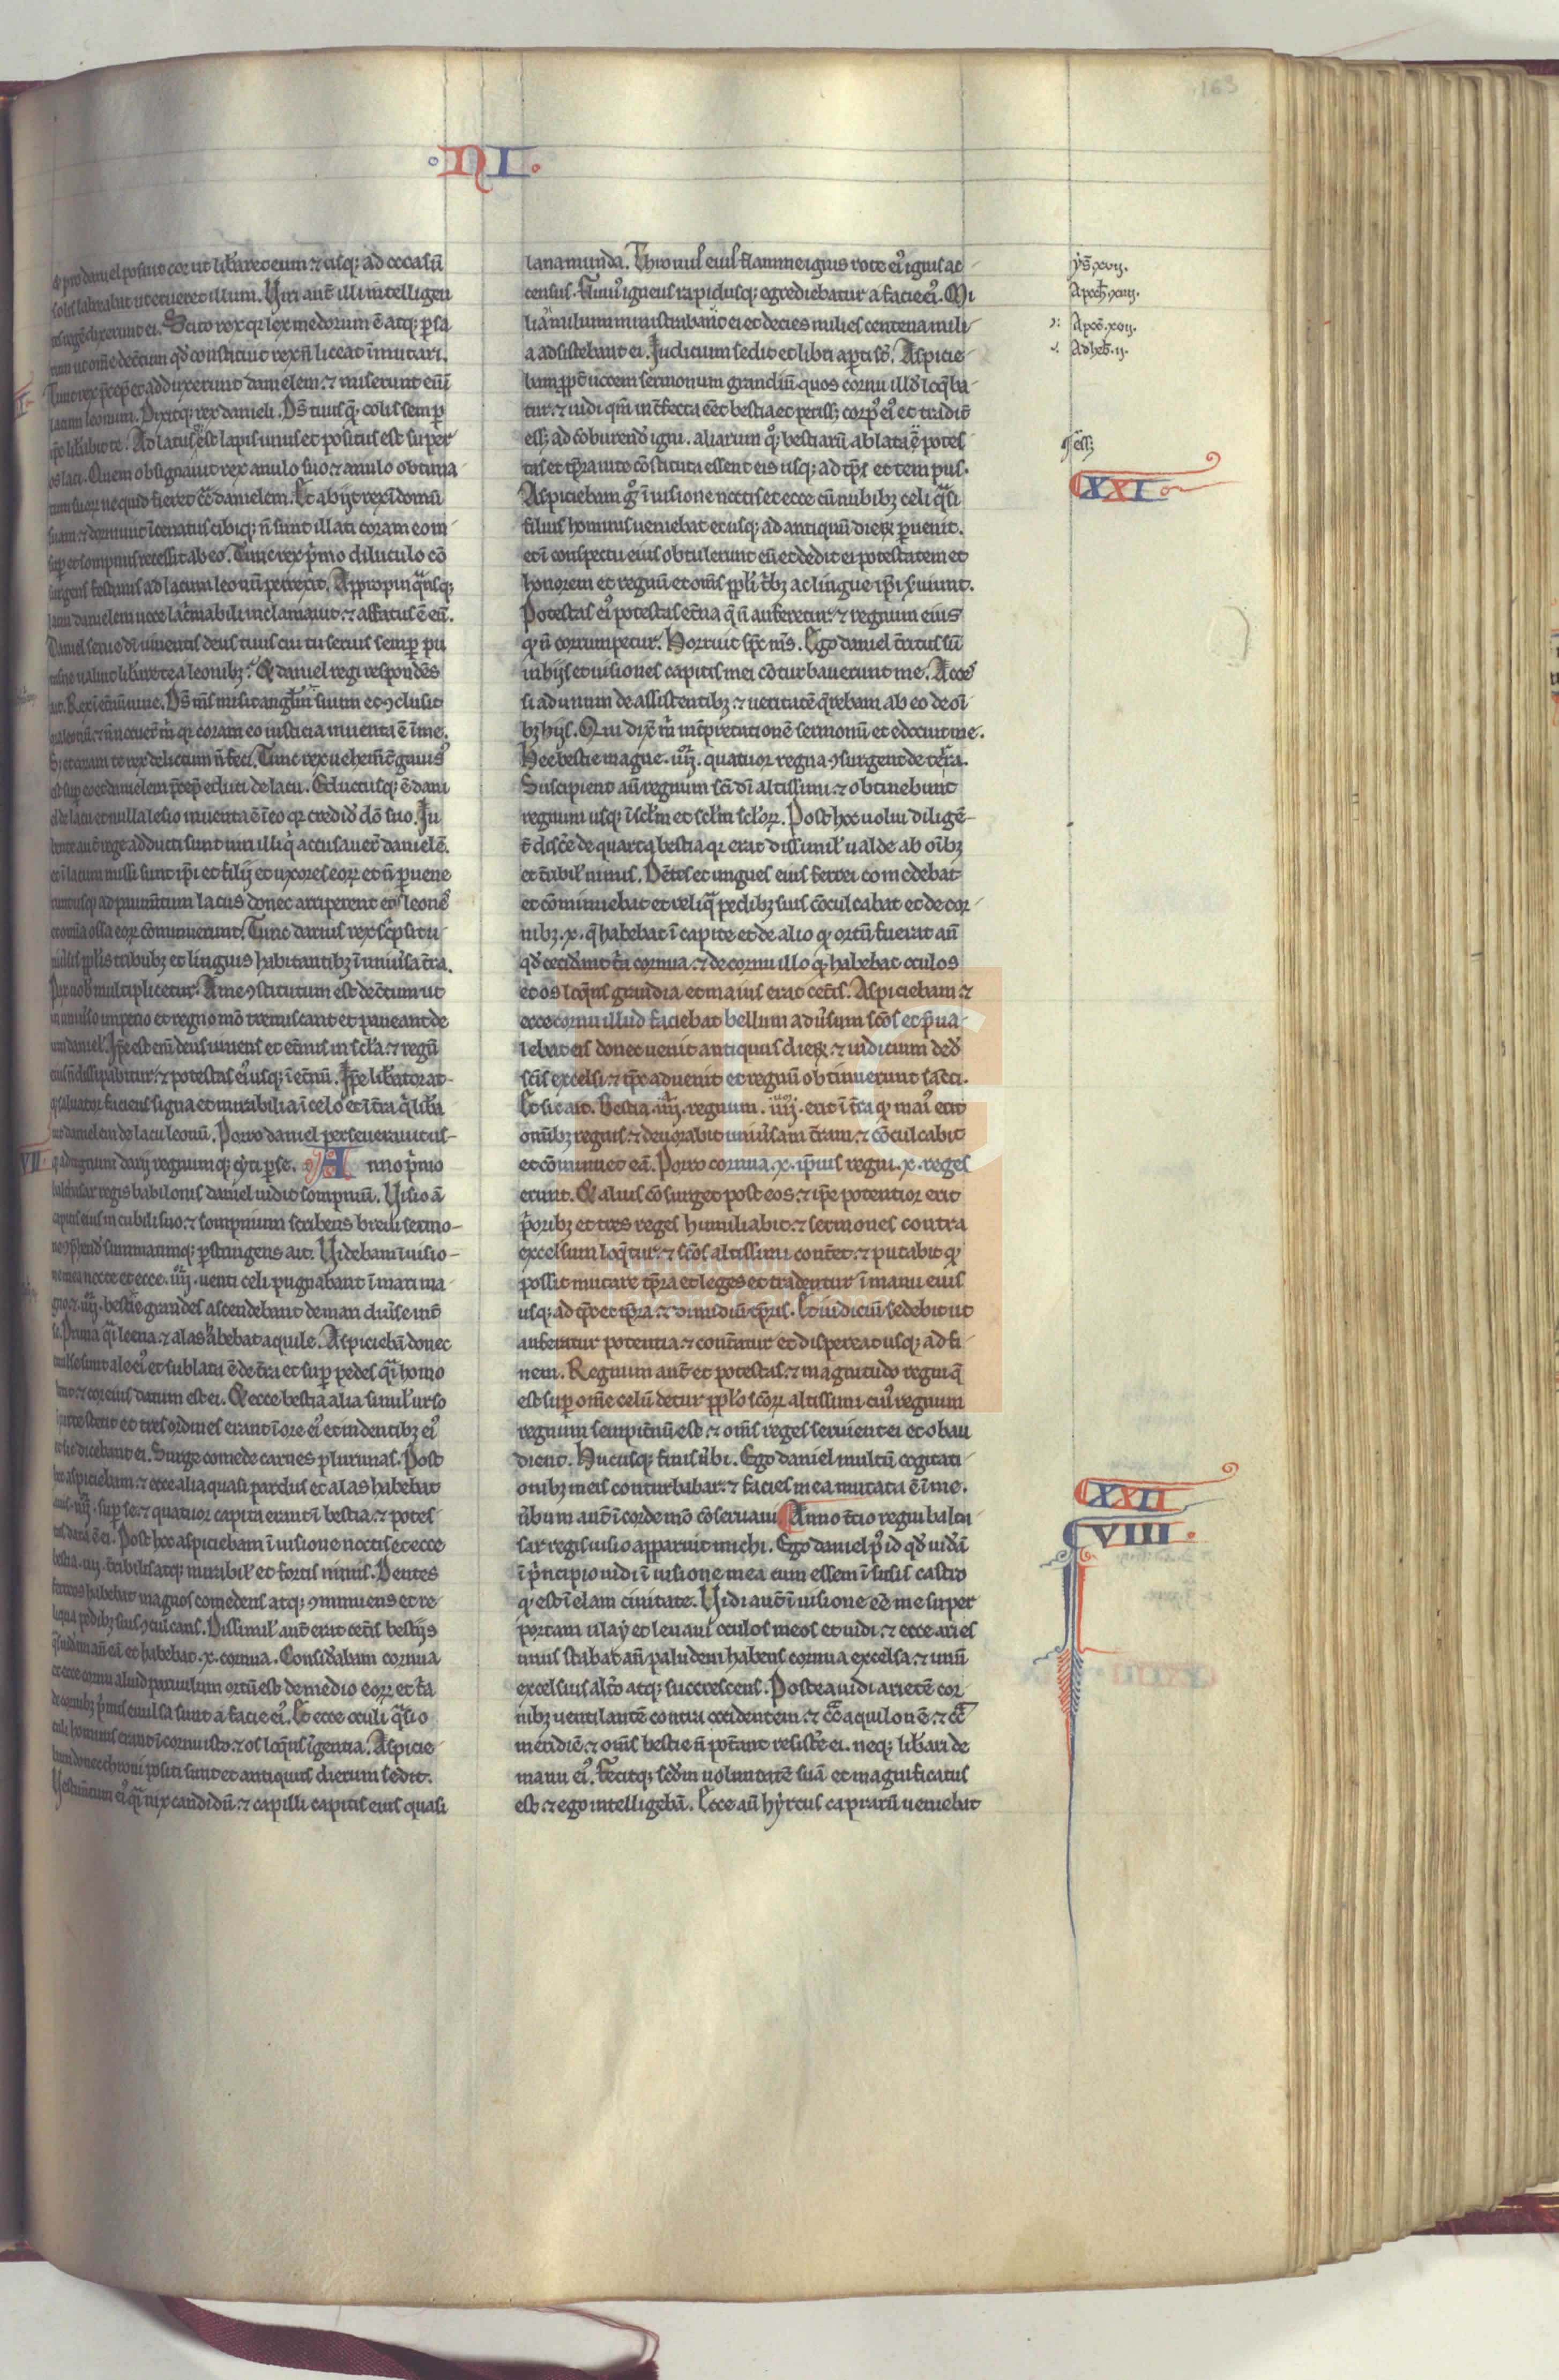 163
·NI·
& pro daniel posuit cor ut lib̄aret eum ⁊ usq; ad occasū
solis laborabat ut erueret illum. Viri aut̄ illi intelligen
tes regē dixerunt ei. Scito rex qr lex medorum ē atq; p̱sa
rum ut om̄e decr̄tum qd̄ constituit rex n̄ liceat īmutari.
Tunc rex p̄cep̄ et adduxerunt danielem. ⁊ miserunt eū ī
lacum leonum. Dixitq; rex danieli. Ds̄ tuus quē colis semp̱
ip̄e lib̄abit te. Allatusq; est lapis unus et positus est super
os laci. Quem obsignauit rex anulo suo. ⁊ anulo obtima
tum suoꝝ ne quid fieret ct̄ danielem. Et abijt rex ī domū
suam. ⁊ dormiuit īcenatus cibiq; n̄ sunt illati coram eo in
sup̱ et sompnus recessit ab eo. Tunc rex p̄mo diluculo cō
surgens festinus ad lacum leonū perrexit. Appropinq̄nsq;
lacui danielem uoce lac̄mabili inclamauit. ⁊ affatus ē eū.
Daniel serue dī uiuentis deus tuus cui tu seruis semp̱ pu
tasne ualuit lib̄are te a leonibꝫ. Et daniel regi respondēs
ait. Rex īet̄nū uiue. Ds̄ ms̄ misit angl̄m suum et ꝯclusit
ora leonū. ⁊ n̄ nocuer̄ m̄ qr coram eo iusticia inuenta ē ī me.
S; et coram te rex delictum n̄ feci. Tunc rex uehem̄t̄ gauisꝰ
est sup̱ eo et danielem p̄cep̄ educi de lacu. Eductusq; ē dani
el de lacu et nulla lesio inuenta ē ī eo qr credid̄ dō suo. Ju
bente aut̄ rege adducti sunt uiri illi q̄ accusauer̄ danielē.
et ī lacum missi sunt ip̄i et filij et uxores eoꝝ et n̄ p̱uene
runt usq; ad pauim̄tum lacus donec arriperent eos leonēs
et om̄ia ossa eoꝝ cōminuerunt. Tunc darius rex sc̄psit u
niūsis pp̄lis tribubꝫ et linguis habitantibꝫ ī uniūsa t̄ra.
Pax uob̄ multiplicetur. A me ꝯstitutum est decr̄tum ut
in uniūso imperio et regno mō tremiscant et paueant de
um daniel. Ip̄e est eni̅ deus uiuens et et̄nus in scl̄a. ⁊ regnū
eius n̄ dissipabitur. ⁊ potestas eiꝰ usq; ī et̄nū. Ip̄e lib̄ator at
q; saluator faciens signa et mirabilia ī celo et ī t̄ra q̄ lib̄a
uit danielem de lacu leonū. Porro daniel perseuerauit us-
q; ad regnum darij regnumq; cyri p̱se. Anno p̄mo
baltasar regis babilonis daniel uidit sompnium. Uisio aū
capitis eius in cubili suo. ⁊ sompnium scribens breui sermo-
ne ꝯp̄hend̄ summatimq; p̱stringens ait. Uidebam ī uisio-
ne mea nocte et ecce .iiij. uenti celi pugnabant ī mari ma
gno. ⁊ .iiij. bestie grandes ascendebant de mari diūse int̄
se. Prima q̄i leena. ⁊ alas habebat aquile. Aspiciebā donec
euulse sunt ale eiꝰ et sublata ē de t̄ra et sup̱ pedes q̄i homo
stetit. ⁊ cor eius datum est ei. Et ecce bestia alia simil̄ urso
in parte stetit et tres ordines erant ī ore eiꝰ et in dentibꝫ eiꝰ
et sic dicebant ei. Surge comede carnes plurimas. Post
hec aspiciebam. ⁊ ecce alia quasi pardus et alas habebat
auis .iiij. sup̱ se. ⁊ quatuor capita erant ī bestia. ⁊ potes
tas data ē ei. Post hec aspiciebam ī uisione noctis et ecce
bestia .iiij. t̄ribilis atq; mirabil̄ et fortis nimis. Dentes
ferreos habebat magnos comedens atq; ꝯminuens et re
liqua pedibꝫ suis ꝯculcans. Dissimil̄ aut̄ erat cet̄is bestijs
q̄s uideram an̄ eā et habebat .x. cornua. Considerabam cornua
et ecce cornu aliud paruulum ortū est de medio eoꝝ et t̄a
de cornibꝫ p̄mis euulsa sunt a facie eiꝰ. Et ecce oculi q̄si o
culi hominis erant ī cornu isto. ⁊ os loq̄ns īgentia. Aspicie
bam donec throni positi sunt et antiquus dierum sedit.
Vestim̄tum eiꝰ q̄i nix candidū. ⁊ capilli capitis eius quasi
lana munda. Thronus eius flamme ignis rote eiꝰ ignis ac-
census. Fluuiꝰ igneus rapidusq; egrediebatur a facie eiꝰ. Mi
lia miliuum ministrabant ei et decies milies centena mili-
a adsistebant ei. Judicium sedit et libri ap̱ti st̄. Aspicie-
bam ꝓpt̄ uocem sermonum grandiū quos cornu illd̄ loq̄ba
tur. ⁊ uidi qm̄ int̄fecta eēt bestia et periss; corpꝰ eiꝰ et tradit̄
ess; ad cōburend̄ igni. aliarum q̊; bestiarū ablata ē potes
tas et tp̱ra uite cōstituta essent eis usq; ad tp̱s et tempus.
Aspiciebam g̊ ī uisione noctis et ecce cū nubibꝫ celi q̄si
filius hominis ueniebat et usq; ad antiquū dieꝝ p̱uenit.
et ī conspectu eius obtulerunt eū et dedit ei potestatem et
honorem et regnū et om̄s pp̄li t̄bꝫ ac lingue ip̄i s̄uiunt.
Potestas eiꝰ potestas et̄na q̄ n̄ auferetur. ⁊ regnum eius
qd̄ n̄ corrumpetur. Horruit sp̄c ms̄. Ego daniel t̄ritus sū
in hijs et uisiones capitis mei cōturbauerunt me. Acces
si ad unum de assistentibꝫ. ⁊ ueritatē q̄rebam ab eo de oī
bꝫ hijs. Qui dix̄ m̄ int̄pretationē sermonū et edocuit me.
Hee bestie magne .iiij. quatuor regna ꝯsurgent de terra.
Suscipient aū regnum sc̄i dī altissimi. ⁊ obtinebunt
regnum usq; ī scl̄m et scl̄m scl̄oꝝ. Post hec uolui diligē-
t̄ discēe de quarta bestia qr erat dissimil̄ ualde ab oībꝫ
et t̄ribil̄ nimis. Dētes et ungues eius ferrei comedebat
et cōminuebat et reliq̄ pedibꝫ suis cōculcabat et de cor-
nibꝫ .x. q̄ habebat ī capite et de alio qd̄ ortū fuerat an̄
qd̄ cecid̄ant t̄a cornua. ⁊ de cornu illo qd̄ habebat oculos
et os loq̄ns grandia et maius erat cet̄is. Aspiciebam. ⁊
ecce cornu illud faciebat bellum adūsum sc̄os et p̄ua-
lebat eis donec uenit antiquus dieꝝ. ⁊ iudicium ded̄
sc̄is excelsi. ⁊ tp̱c aduenit et regnū obtinuerunt sancti.
Et sic ait. Bestia .iiij. regnum .iiij. erit ī t̄ra qd̄ maiꝰ erit
omībꝫ regnis. ⁊ deuorabit uniūsam t̄ram. ⁊ cōculcabit
et cōminuet eā. Porro cornua .x. ip̄ius regni .x. reges
erunt. Et alius cōsurget post eos. ⁊ ip̄e potentior erit
p̄oribꝫ et tres reges humiliabit. ⁊ sermones contra
excelsum loq̄tur. ⁊ sc̄os altissimi cont̄et. ⁊ putabit qd̄
possit mutare tp̱ra et leges et tradentur ī manu eius
usq; ad tp̱c et tp̱ra. ⁊ dimidiū tp̱ris. Et iudiciū sedebit ut
auferatur potentia. ⁊ cont̄atur et dispereat usq; ad fi
nem. Regnum aut̄ et potestas. ⁊ magnitudo regni q̄
est sup̱ om̄e celū detur pp̄lo sc̄oꝝ altissimi cuiꝰ regnum
regnum sempit̄nū est. ⁊ om̄s reges seruient ei et obau
dient. Hucusq; finis ūbi. Ego daniel multū cogitati
onibꝫ meis conturbabar. ⁊ facies mea mutata ē ī me.
ūbum aut̄ ī corde mō cōseruaui. Anno t̄cio regni balta
sar regis uisio apparuit michi. Ego daniel pꝰ id qd̄ uid̄ā
ī p̄ncipio uidi ī uisione mea cum essem ī susis castro
qd̄ est ī elam ciuitate. Vidi aut̄ ī uisione eē me super
portam ulay et leuaui oculos meos et uidi. ⁊ ecce aries
unus stabat an̄ paludem habens cornua excelsa. ⁊ unū
excelsius alt̄o atq; succrescens. Postea uidi arietē cor
nibꝫ uentilantē contra occidentem. ⁊ ct̄a aquilonē. ⁊ ct̄a
meridiē. ⁊ om̄s bestie n̄ pot̄ant resistēe ei. neq; lib̄ari de
manu eiꝰ. Fecitq; scd̄m uoluntatē suā et magnificatus
est. ⁊ ego intelligebā. Ecce aū hyrcus caprarū ueniebat
ys̄. xvij.
Apoc̄.
Apoc̄. xvij.
Ad heb̄. ij.
ēss;
XXI
XXII
VIII.
VII
Fundación
Lázaro Galdiano